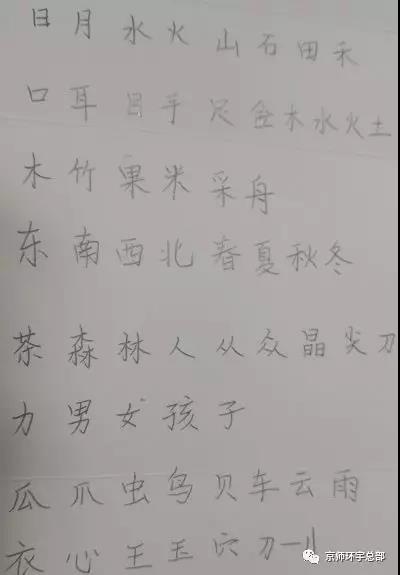 日 月 水 火 山 石 田 禾
口 耳 目 手 尺 金 木 水 火 土
木 竹 果 米 采 舟
东 南 西 北 春 夏 秋 冬
茶 森 林 人 从 众 晶 尖 刀
力 男 女 孩 子
瓜 爪 虫 鸟 贝 车 云 雨
衣 心 王 玉 穴 刀 一 刂
京师环宇总部